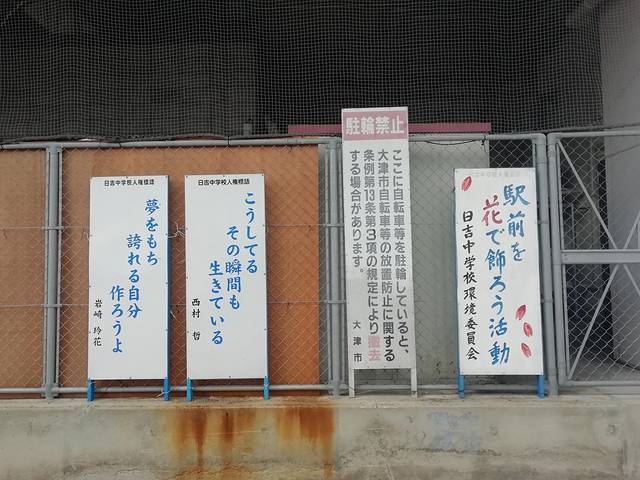 日吉中学校人権標語
夢をもち
誇れる自分
作ろうよ
岩崎 玲花
日吉中学校人権標語
こうしてる
その瞬間も
生きている
西村 哲
駐輪禁止
ここに自転車等を駐輪していると、
大津市自転車等の放置防止に関する
条例第13条第3項の規定により撤去
する場合があります。
大津市
駅前を
花で飾ろう活動
日吉中学校環境委員会